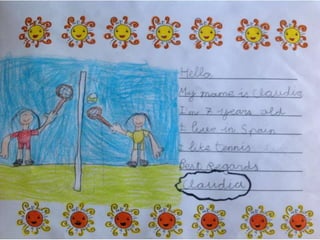 Hello
My name is Claudia
I'm 7 years old
I live in Spain
I like tennis
Best regards
Claudia